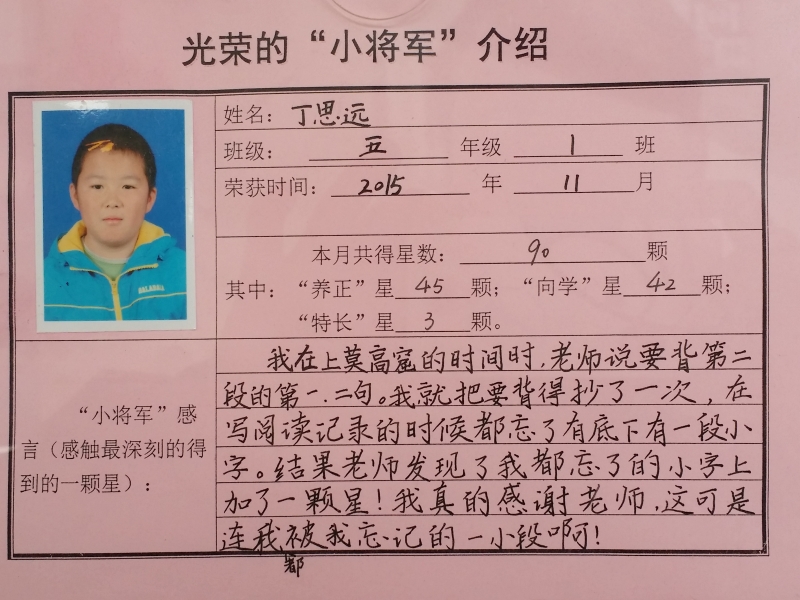 光荣的“小将军”介绍
姓名：丁思远
班级： 五 年级 1 班
荣获时间： 2015 年 11 月
本月共得星数： 90 颗
其中：“养正”星 45 颗；“向学”星 42 颗；
“特长”星 3 颗。
“小将军”感
言（感触最深刻的得
到的一颗星）：
我在上莫高窟的时间时，老师说要背第二
段的第一.二句。我就把要背得抄了一次，在
写阅读记录的时候都忘了有底下有一段小
字。结果老师发现了我都忘了的小字上
加了一颗星！我真的感谢老师，这可是
连我被我忘记的一小段啊！
都
BALABALA